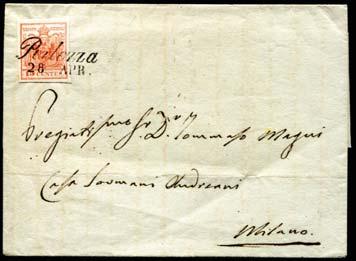 Porlezza
28 APR.
15 CENTES
Pregiatissmo Sr. Dr. Tommaso Magni
Casa Sormani Andreani
Milano.